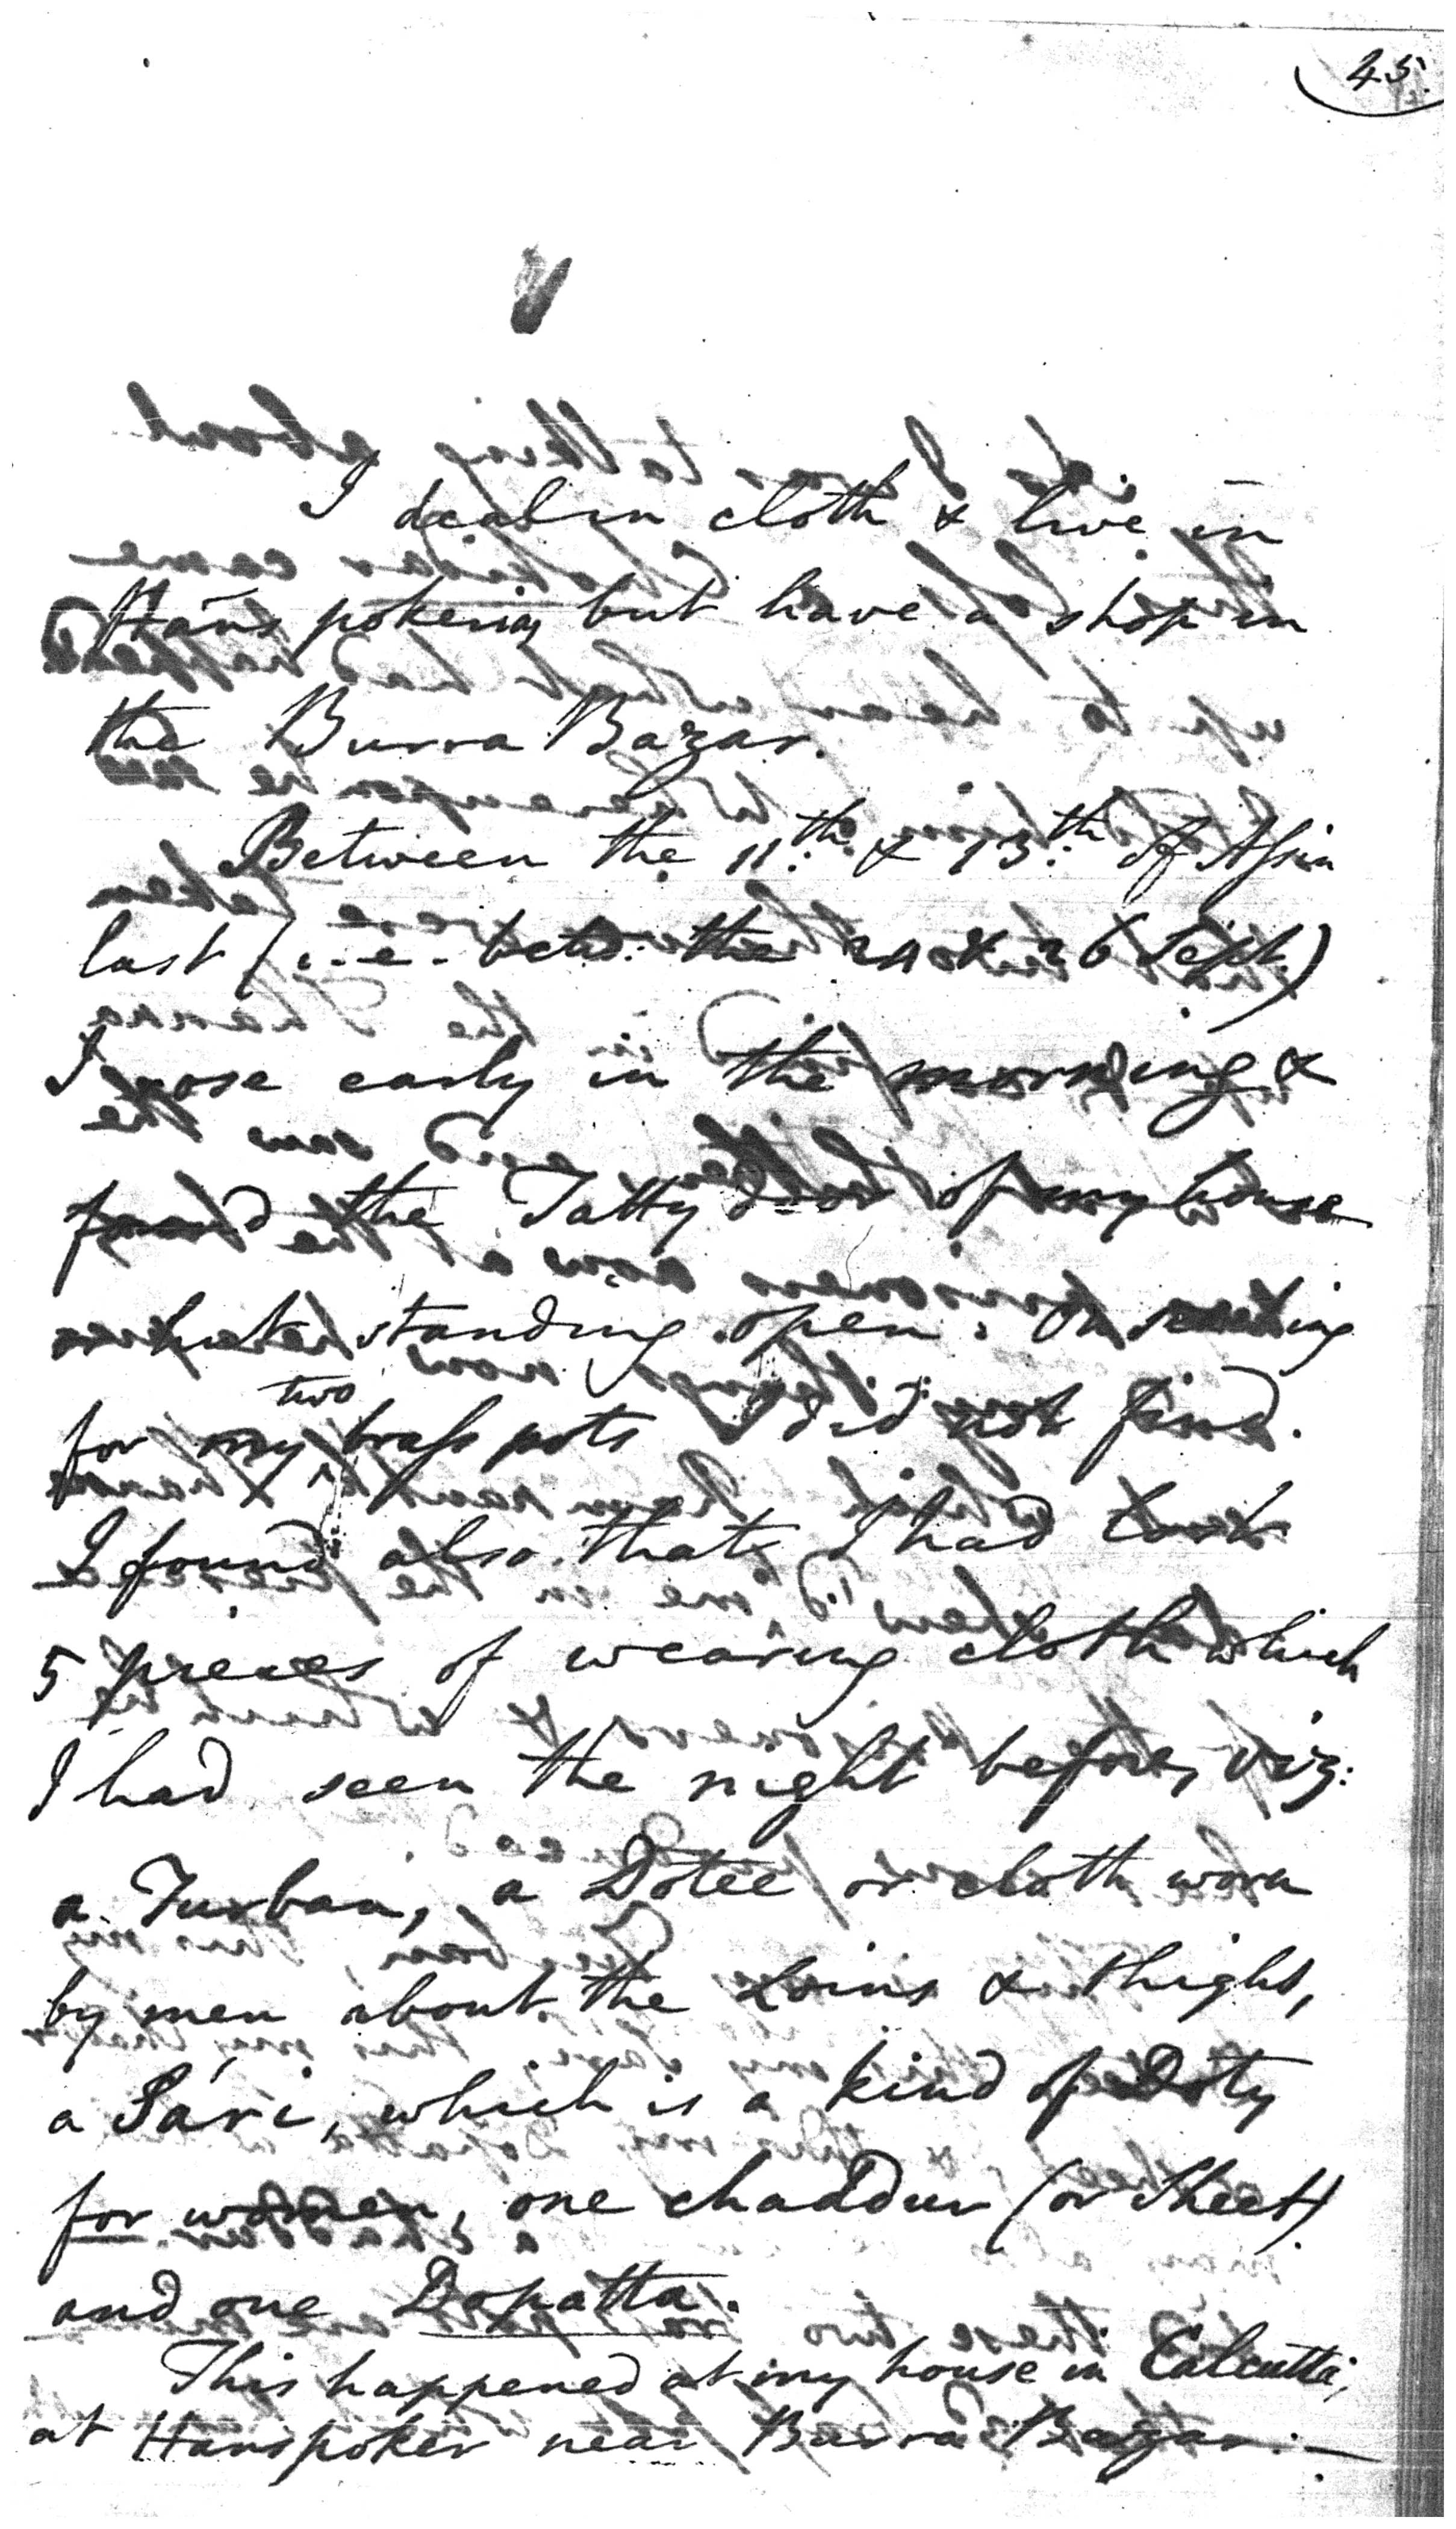 45.
I deal in cloth & live in
Hans pokeriay but have a shop in
the Burra Bazar.
Between the 11.th & 13.th of Assin
last (i.e. betw. the 24 & 26 Sept.)
I rose early in the morning &
found the Tatty door of my house
standing open. On
for my two brass pots I did not find.
I found also that I had lost
5 pieces of wearing cloth which
I had seen the night before, viz:
a Turban, a Dotee or cloth worn
by men about the Loins & thighs,
a Sári, which is a kind of Doty
for women, one chaddur (or Sheet)
and one Dopatta.
This happened at my house in Calcutta,
at Hanspoker near Burra Bazar.—